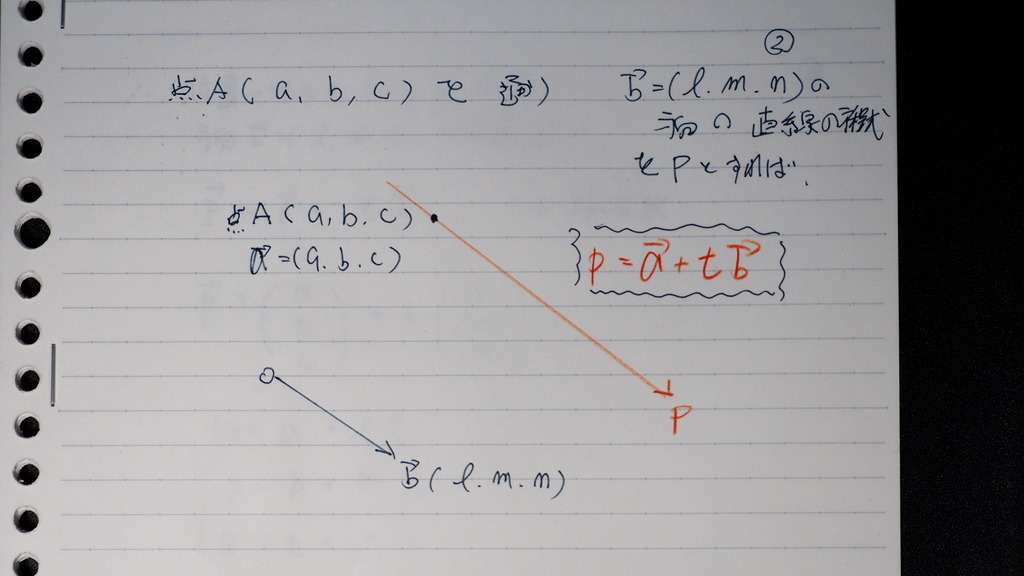 ②
点A(a, b, c)を通り b⃗=(l.m.n)の
方向の直線の
をPとすれば.
点A(a,b.c)
a⃗=(a.b.c)
p=a⃗+tb⃗
O
P
b⃗(l.m.n)